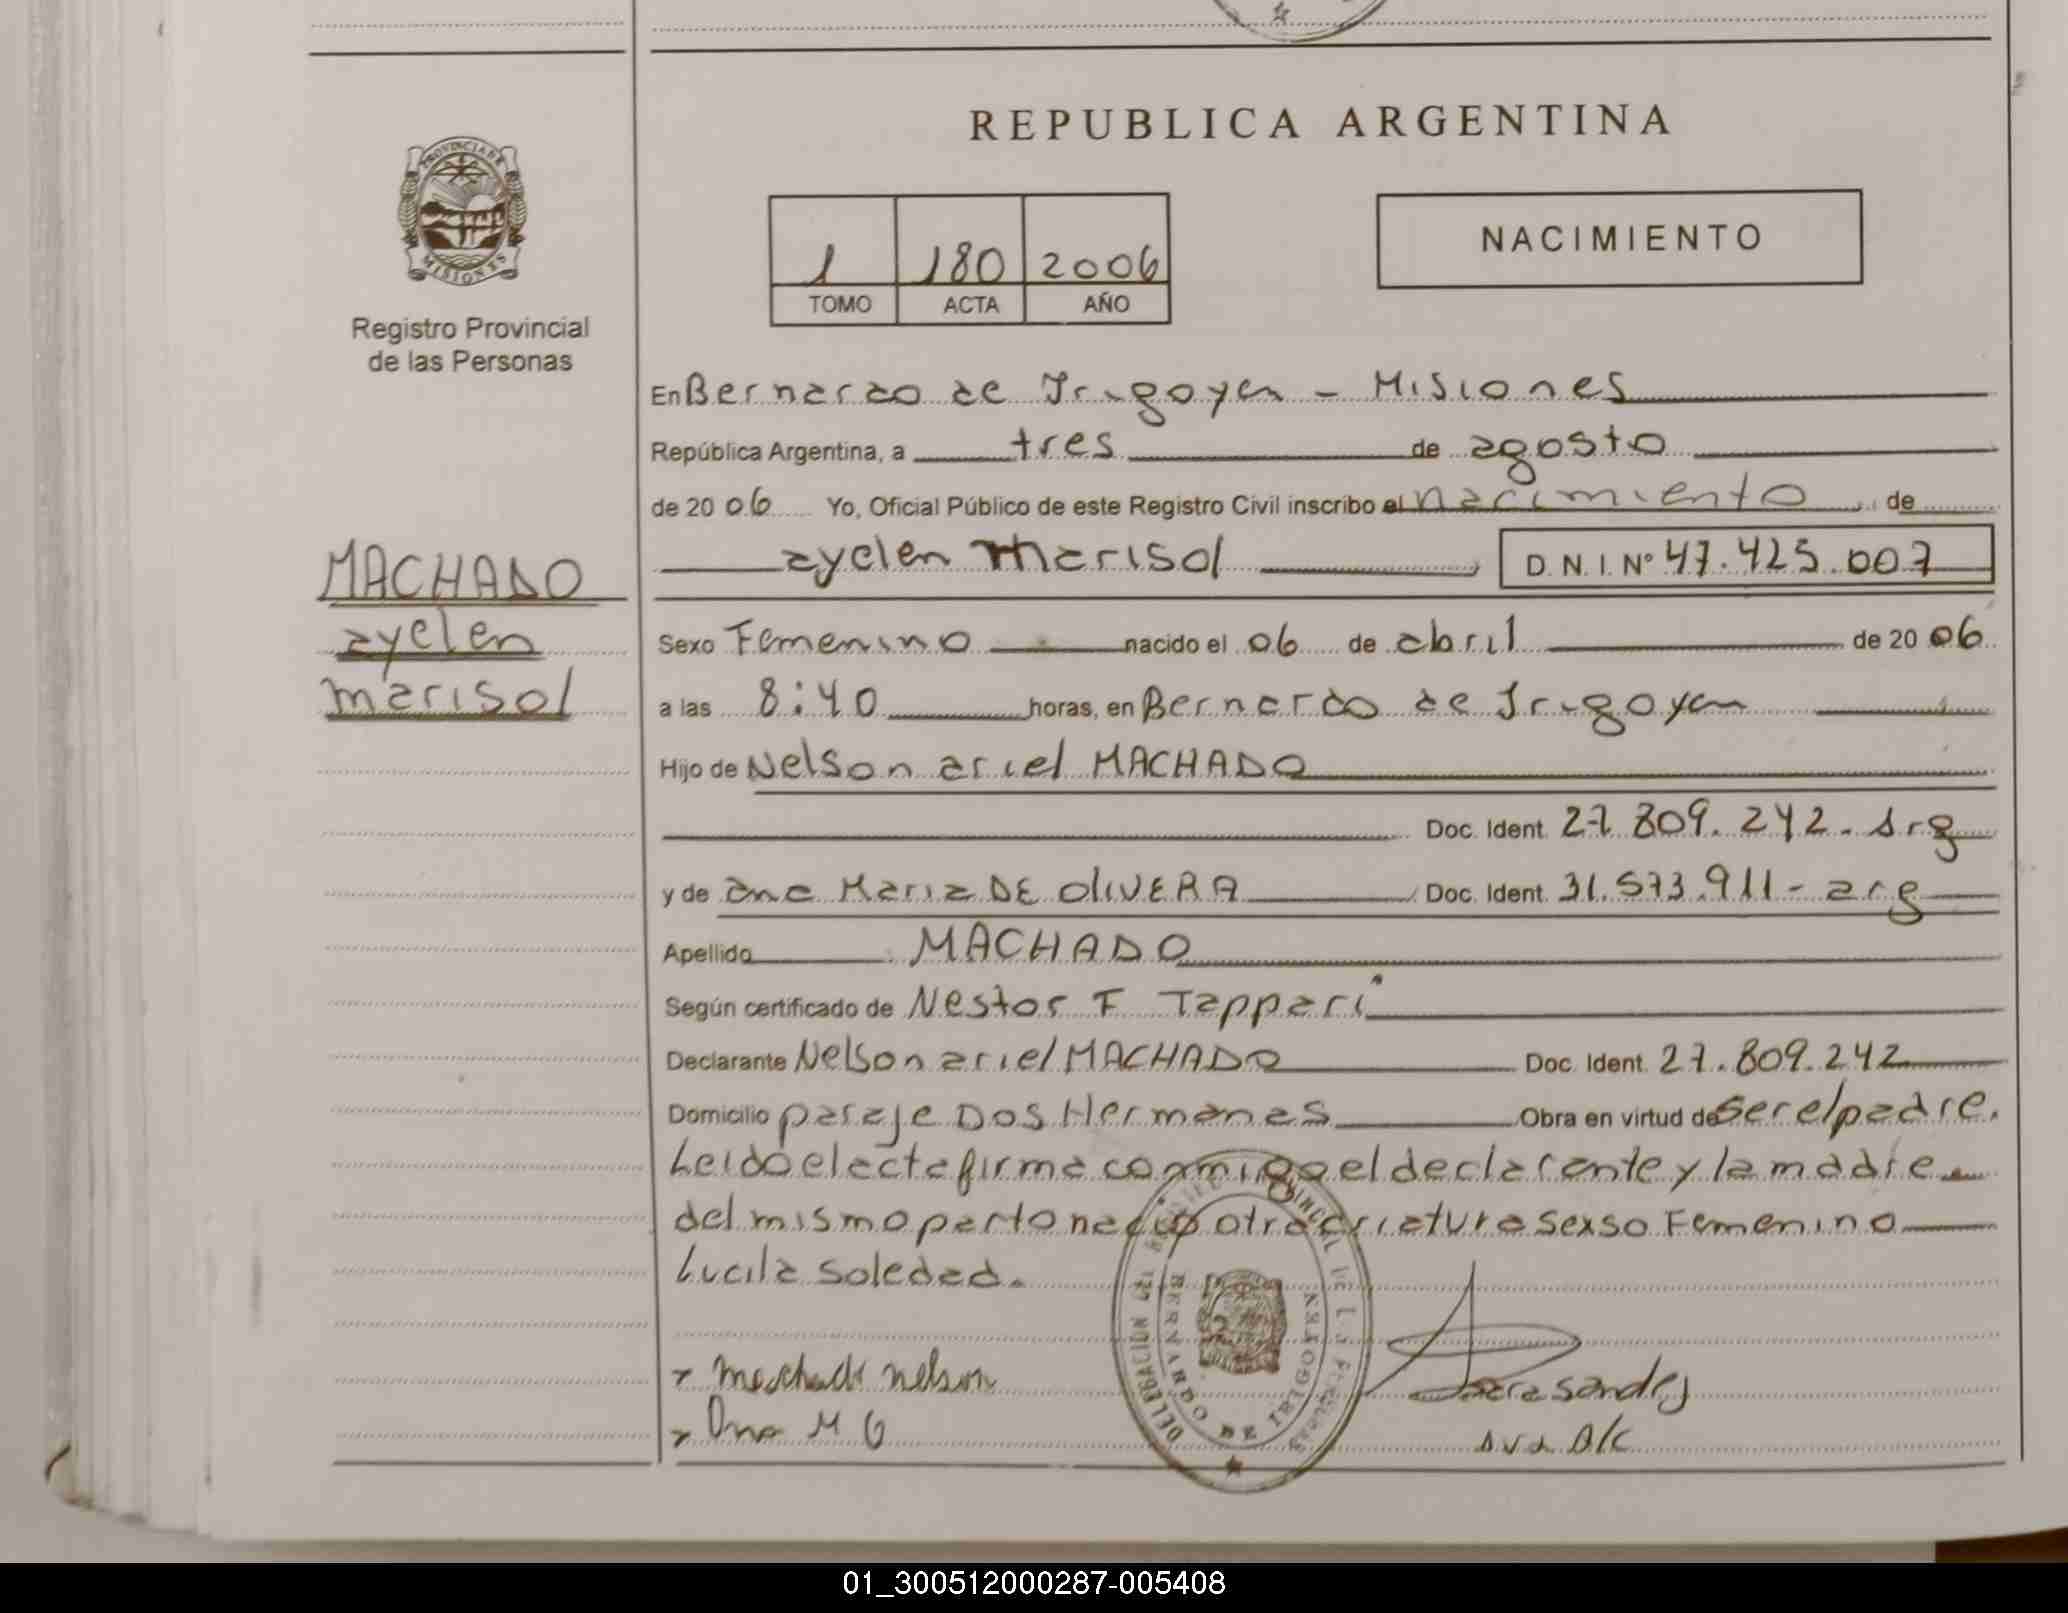 REPUBLICA ARGENTINA
PROVINCIA DE
MISIONES
Registro Provincial
de las Personas
1 180 2006
TOMO ACTA AÑO
NACIMIENTO
En Bernardo de Irigoyen - Misiones
República Argentina, a tres de agosto
de 2006 Yo, Oficial Público de este Registro Civil inscribo el nacimiento de
ayelen Marisol D. N. I. Nº 47.425.007
MACHADO
ayelen
marisol
Sexo Femenino nacido el 06 de abril de 2006
a las 8:40 horas, en Bernardo de Irigoyen
Hijo de Nelson ariel MACHADO
Doc. Ident. 27.809.242. Arg
y de ana Maria DE OlIVERA Doc. Ident. 31.573.911 - arg
Apellido MACHADO
Según certificado de Nestor F Tappari
Declarante Nelson ariel MACHADO Doc. Ident. 27.809.242
Domicilio paraje Dos Hermanas Obra en virtud de ser el padre.
Leido el acta firma conmigo el declarante y la madre
del mismo parto nacio otra criatura sexso Femenino
Lucila Soledad.
Machado nelson
Ana M O
DELEGACION BERNARDO DE IRIGOYEN
01_300512000287-005408